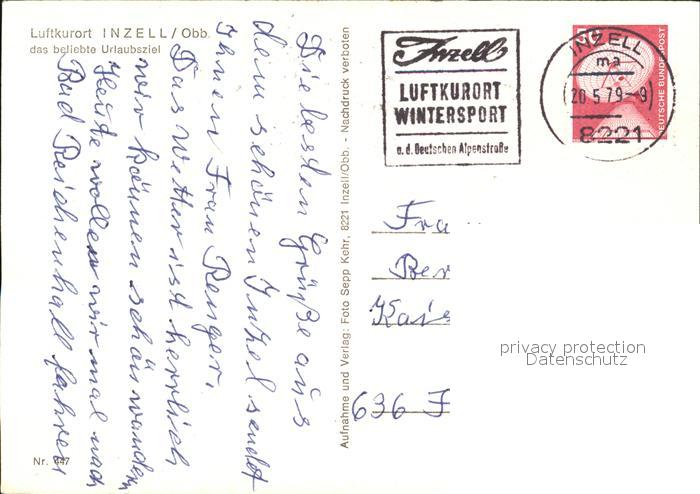 Luftkurort INZELL/Obb.
das beliebte Urlaubsziel
Die besten Grüße aus
dem schönen Inzel sendet
Ihnen Frau Renger.
Das Wetter ist herrlich
wir können schön wandern
Heute wollen wir mal nach
Bad Reichenhall fahren
Nr. 447
Aufnahme und Verlag: Foto Sepp Kehr, 8221 Inzell/Obb. - Nachdruck verboten
Inzell
LUFTKURORT
WINTERSPORT
a.d. Deutschen Alpenstraße
INZELL
ma
20.5.79-9
8221
50
DEUTSCHE BUNDESPOST
Fra
Ber
Kais
636 F
privacy protection
Datenschutz